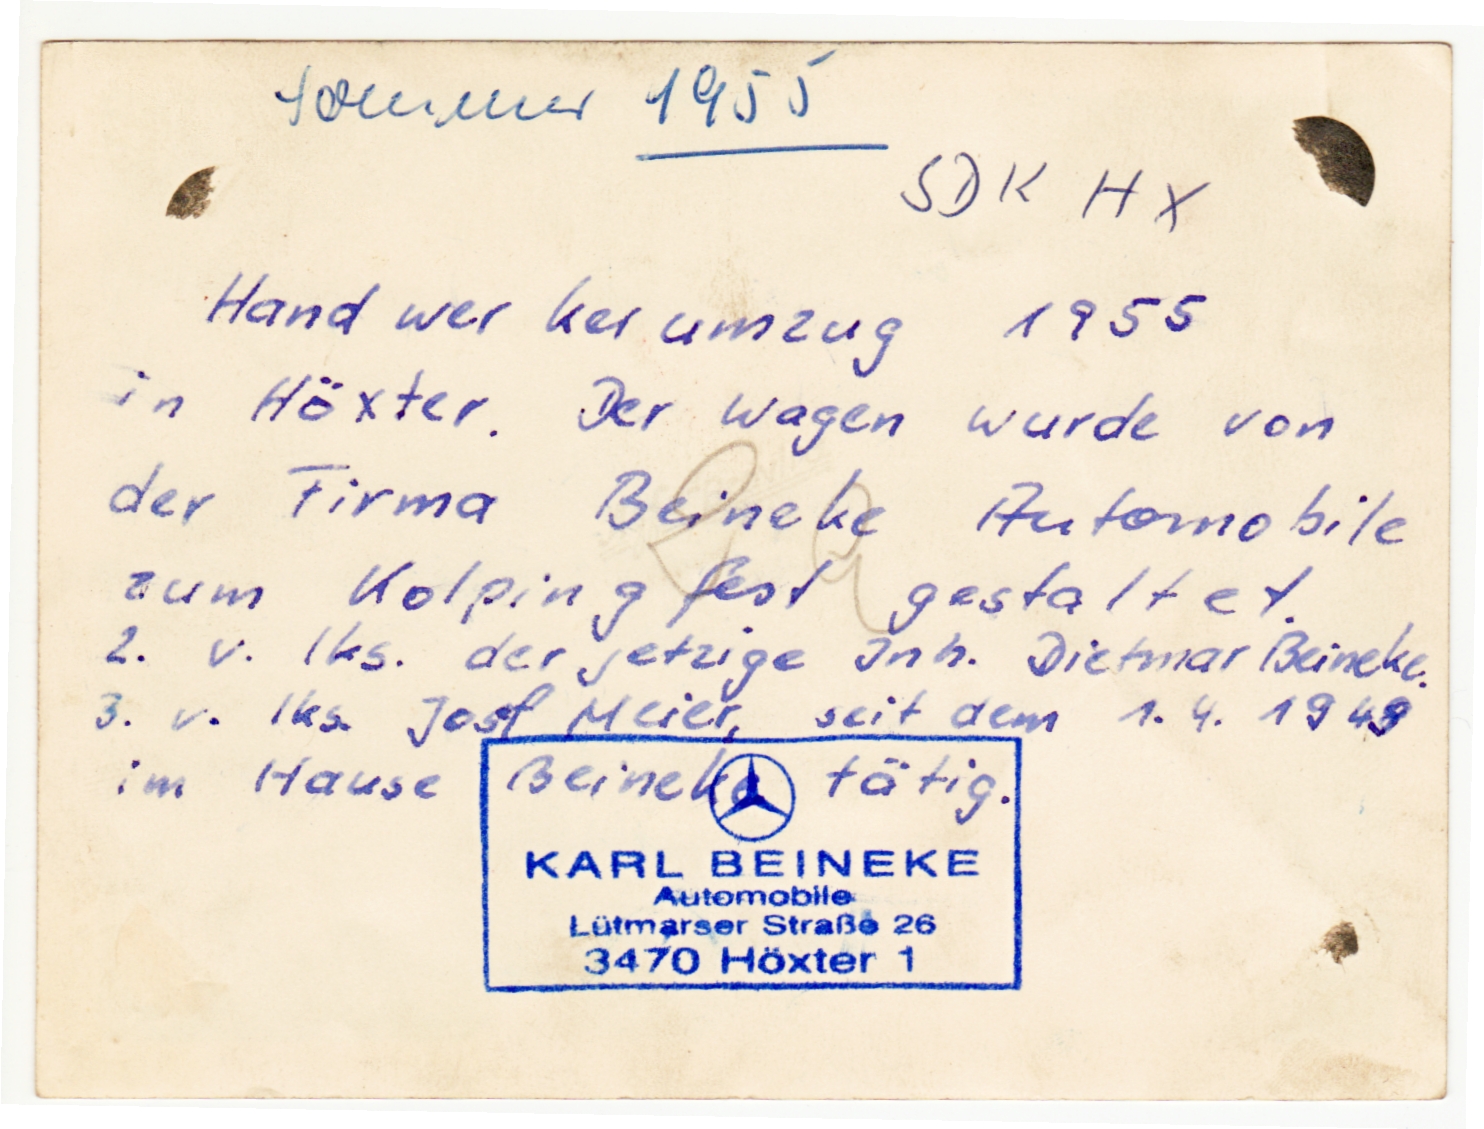 Sommer 1955
SDK HX
Handwerkerumzug 1955
in Höxter. Der Wagen wurde von
der Firma Beineke Automobile
zum Kolpingfest gestaltet.
2. v. lks. der jetzige Inh. Dietmar Beineke.
3. v. lks. Josef Meier, seit dem 1. 4. 1949
im Hause Beineke tätig.
KARL BEINEKE
Automobile
Lütmarser Straße 26
3470 Höxter 1